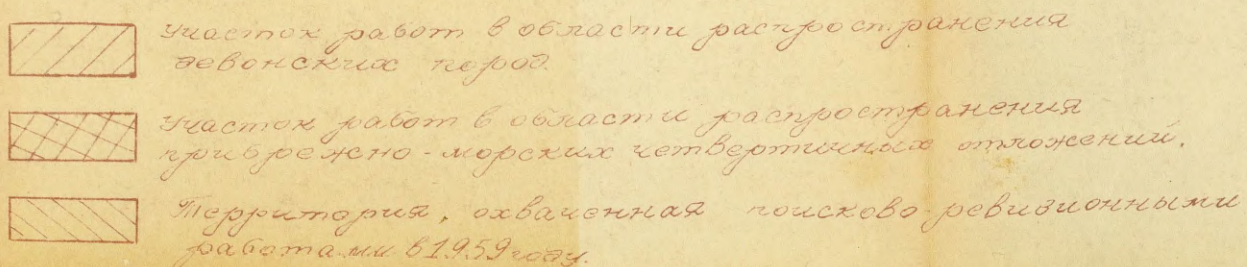 Участок работ в области распространения
девонских пород.
Участок работ в области распространения
прибрежно-морских четвертичных отложений.
Территория, охваченная поисково-ревизионными
работами в 1959 году.